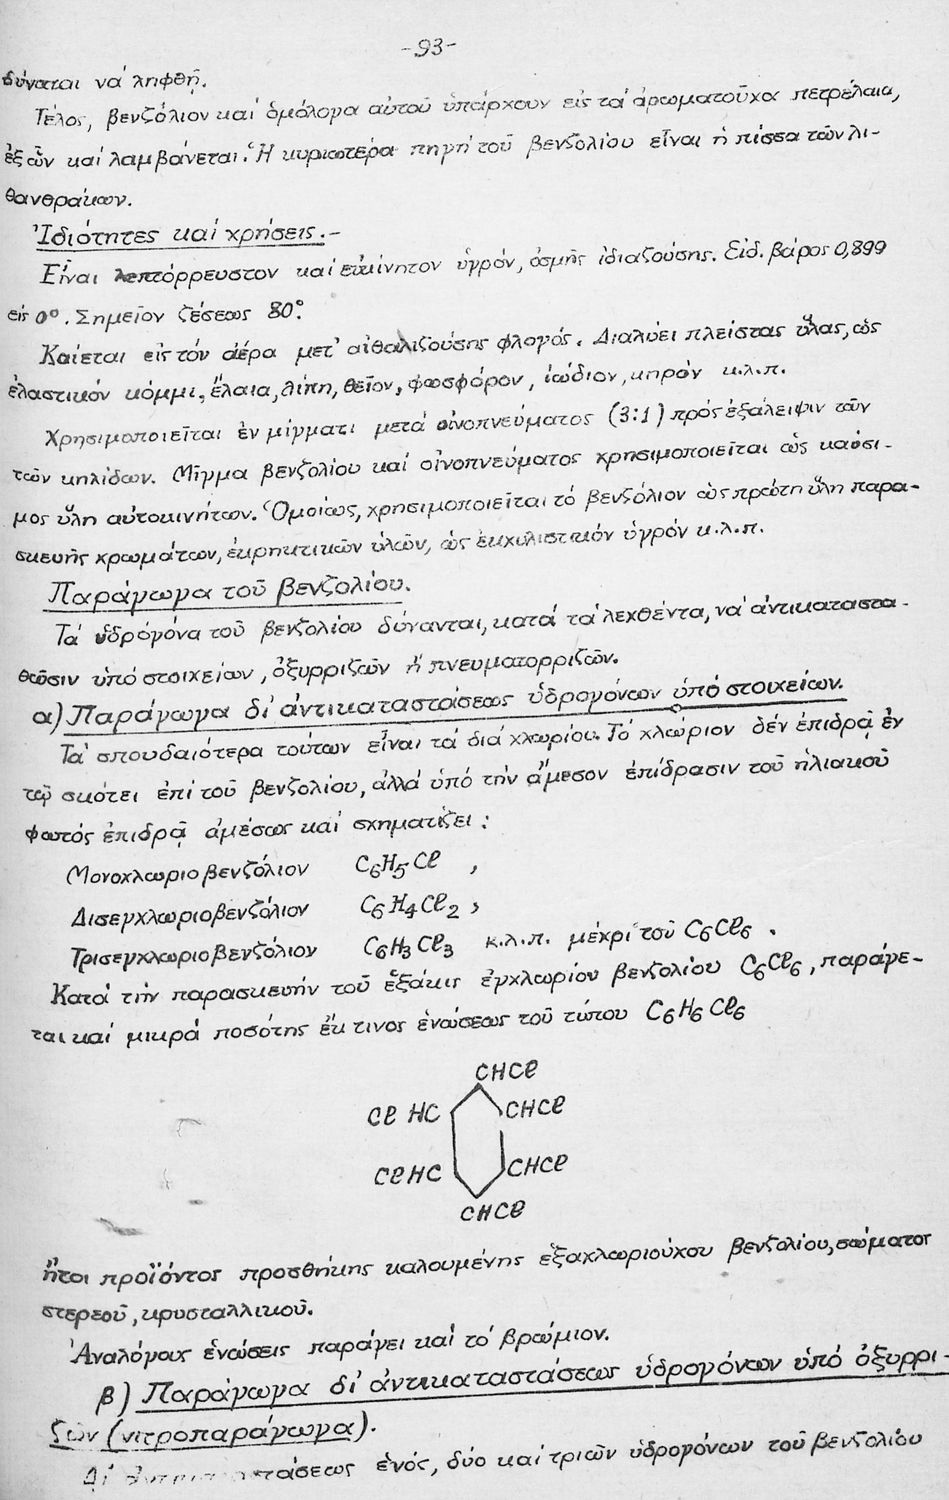 -93-
δύναται νά ληφθῇ.
Τέλος, βενζόλιον καί ὁμόλογα αὐτοῦ ὑπάρχουν εἰς τά ἀρωματοῦχα πετρέλαια,
ἐξ ὧν καί λαμβάνεται. Ἡ κυριωτέρα πηγή τοῦ βενζολίου εἶναι ἡ πίσσα τῶν λι-
θανθράκων.
Ἰδιότητες καί χρήσεις.-
Εἶναι λεπτόρρευστον καί εὐκίνητον ὑγρόν, ὀσμῆς ἰδιαζούσης. Εἰδ. βάρος 0,899
εἰς 0°. Σημεῖον ζέσεως 80°.
Καίεται εἰς τόν ἀέρα μετ' αἰθαλιζούσης φλογός. Διαλύει πλείστας ὕλας, ὡς
ἐλαστικόν κόμμι, ἔλαια, λίπη, θεῖον, φωσφόρον, ἰώδιον, κηρόν κ.λ.π.
Χρησιμοποιεῖται ἐν μίγματι μετά οἰνοπνεύματος (3:1) πρός ἐξάλειψιν τῶν
τῶν κηλίδων. Μῖγμα βενζολίου καί οἰνοπνεύματος χρησιμοποιεῖται ὡς καύσι-
μος ὕλη αὐτοκινήτων. Ὁμοίως, χρησιμοποιεῖται τό βενζόλιον ὡς πρώτη ὕλη παρα-
σκευῆς χρωμάτων, ἐκρηκτικῶν ὑλῶν, ὡς ἐκχυλιστικόν ὑγρόν κ.λ.π.
Παράγωγα τοῦ βενζολίου.
Τά ὑδρόγόνα τοῦ βενζολίου δύνανται, κατά τά λεχθέντα, νά ἀντικαταστα-
θῶσιν ὑπό στοιχείων, ὀξυρριζῶν ἤ πνευματορριζῶν.
α) Παράγωγα δι' ἀντικαταστάσεως ὑδρογόνων ὑπό στοιχείων.
Τά σπουδαιότερα τούτων εἶναι τά διά χλωρίου. Τό χλώριον δέν ἐπιδρᾷ ἐν
τῷ σκότει ἐπί τοῦ βενζολίου, ἀλλά ὑπό τήν ἄμεσον ἐπίδρασιν τοῦ ἡλιακοῦ
φωτός ἐπιδρᾷ ἀμέσως καί σχηματίζει:
Μονοχλωριοβενζόλιον C6H5Cl ,
Δισεγχλωριοβενζόλιον C6H4Cl2 ,
Τρισεγχλωριοβενζόλιον C6H3Cl3 κ.λ.π. μέχρι τοῦ C6Cl6 .
Κατά τήν παρασκευήν τοῦ ἑξάκις ἐγχλωρίου βενζολίου C6Cl6, παράγε-
ται καί μικρά ποσότης ἔκ τινος ἑνώσεως τοῦ τύπου C6H6Cl6
CHCl
Cl HC CHCl
ClHC CHCl
CHCl
ἤτοι προϊόντος προσθήκης καλουμένης ἑξαχλωριούχου βενζολίου, σώματος
στερεοῦ, κρυσταλλικοῦ.
Ἀναλόγους ἑνώσεις παράγει καί τό βρώμιον.
β) Παράγωγα δι' ἀντικαταστάσεως ὑδρογόνων ὑπό ὀξυρρι-
ζῶν (νιτροπαράγωγα).
Δι' ἀντικαταστάσεως ἑνός, δύο καί τριῶν ὑδρογόνων τοῦ βενζολίου